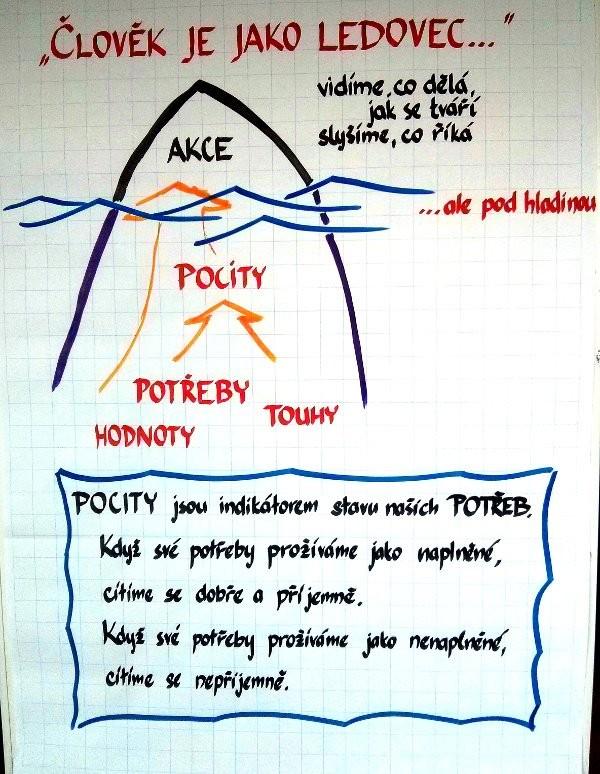 „ČLOVĚK JE JAKO LEDOVEC..."
vidíme, co dělá,
jak se tváří
slyšíme, co říká
AKCE
...ale pod hladinou
POCITY
POTŘEBY
TOUHY
HODNOTY
POCITY jsou indikátorem stavu našich POTŘEB.
Když své potřeby prožíváme jako naplněné,
cítíme se dobře a příjemně.
Když své potřeby prožíváme jako nenaplněné,
cítíme se nepříjemně.